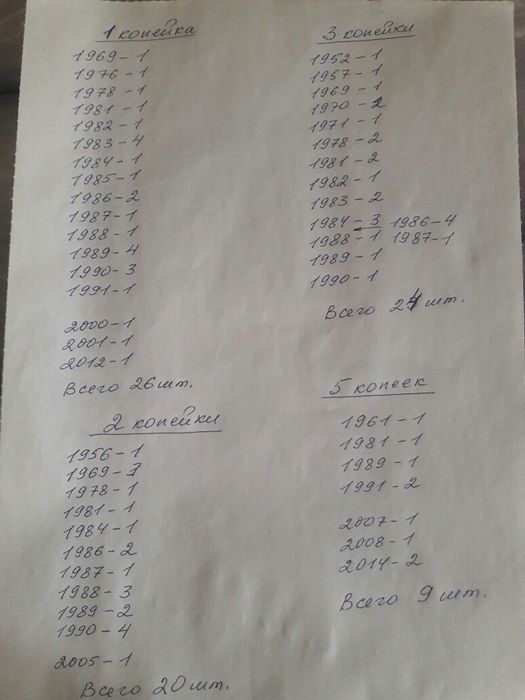 1 копейка
1969-1
1976-1
1978-1
1981-1
1982-1
1983-4
1984-1
1985-1
1986-2
1987-1
1988-1
1989-4
1990-3
1991-1
2000-1
2001-1
2012-1
Всего 26 шт.
2 копейки
1956-1
1969-1
1978-1
1981-1
1984-1
1986-2
1987-1
1988-3
1989-2
1990-4
2005-1
Всего 20 шт.
3 копейки
1952-1
1957-1
1969-1
1970-2
1971-1
1978-2
1981-2
1982-1
1983-2
1984-3 1986-4
1988-1 1987-1
1989-1
1990-1
Всего 24 шт.
5 копеек
1961-1
1981-1
1989-1
1991-2
2007-1
2008-1
2014-2
Всего 9 шт.